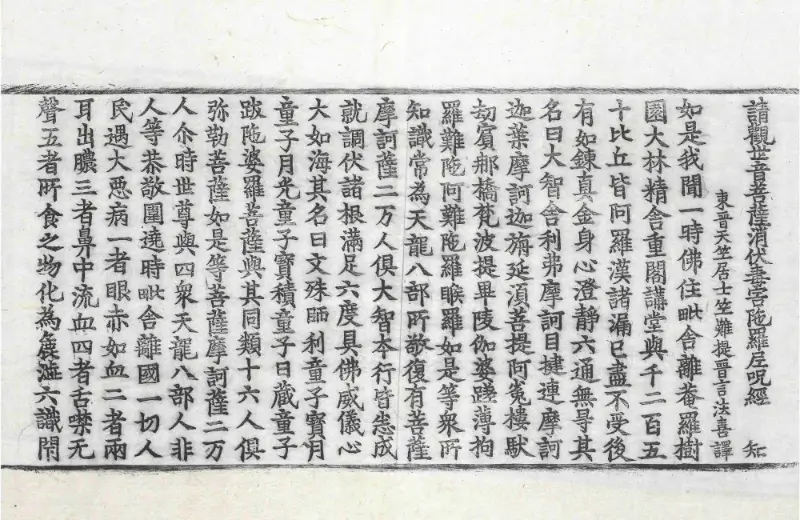 請觀世音菩薩消伏毒害陀羅尼呪經 知
東晉天竺居士竺難提晉言法喜譯
如是我聞一時佛住毗舍離菴羅樹
園大林精舍重閣講堂與千二百五
十比丘皆阿羅漢諸漏已盡不受後
有如鍊真金身心澄靜六通無㝵其
名曰大智舍利弗摩訶目揵連摩訶
迦葉摩訶迦旃延湏菩提阿㝹樓馱
劫賓那橋梵波提畢陵伽婆蹉薄拘
羅難陁阿難陁羅睺羅如是等衆所
知識常為天龍八部所敬復有菩薩
摩訶薩二万人俱大智夲行皆悉成
就調伏諸根滿足六度具佛威儀心
大如海其名曰文殊師利童子寳月
童子月光童子寳積童子日蔵童子
跋陁婆羅菩薩與其同類十六人俱
弥勒菩薩如是等菩薩摩訶薩二万
人尒時世尊與四衆天龍八部人非
人等恭敬圍遶時毗舍離國一切人
民遇大悪病一者眼赤如血二者兩
耳出膿三者鼻中流血四者舌噤无
聲五者所食之物化為麁澁六識閇